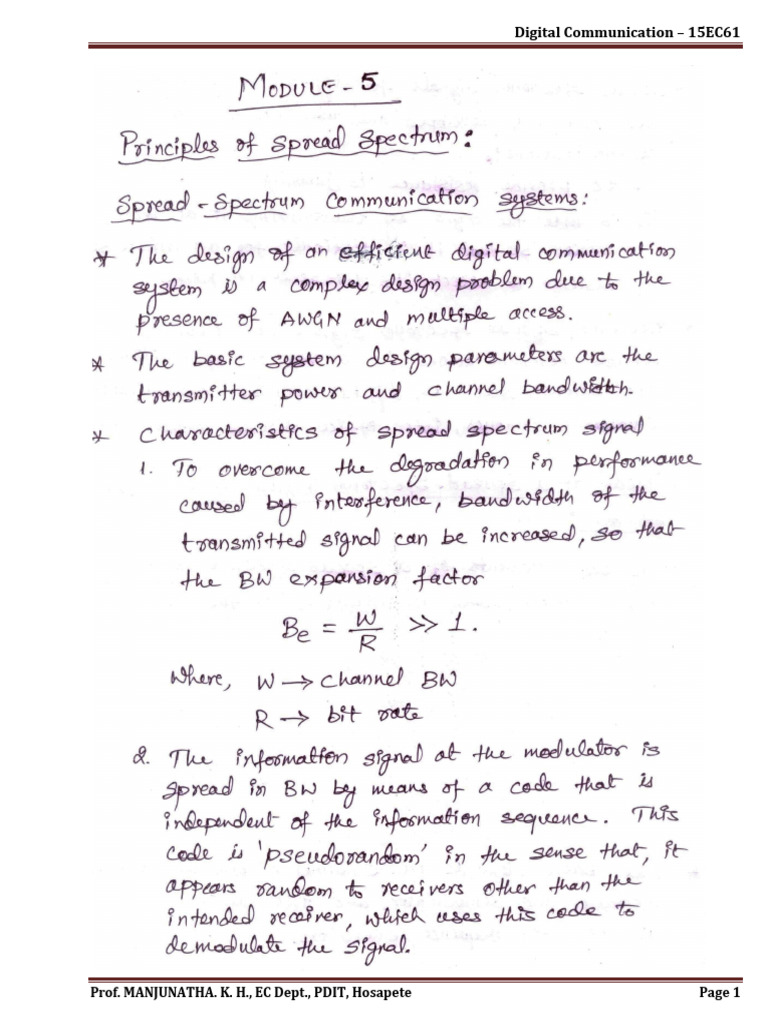 Digital Communication – 15EC61
MODULE - 5
Principles of Spread Spectrum:
Spread - Spectrum Communication systems:
* The design of an efficient digital communication
system is a complex design problem due to the
presence of AWGN and multiple access.
* The basic system design parameters are the
transmitter power and channel bandwidth.
* Characteristics of spread spectrum signal
1. To overcome the degradation in performance
caused by interference, bandwidth of the
transmitted signal can be increased, so that
the BW expansion factor
Be = W/R >> 1.
Where, W → channel BW
R → bit rate
2. The information signal at the modulator is
spread in BW by means of a code that is
independent of the information sequence. This
code is 'pseudorandom' in the sense that, it
appears random to receivers other than the
intended receiver, which uses this code to
demodulate the signal.
Prof. MANJUNATHA. K. H., EC Dept., PDIT, Hosapete Page 1